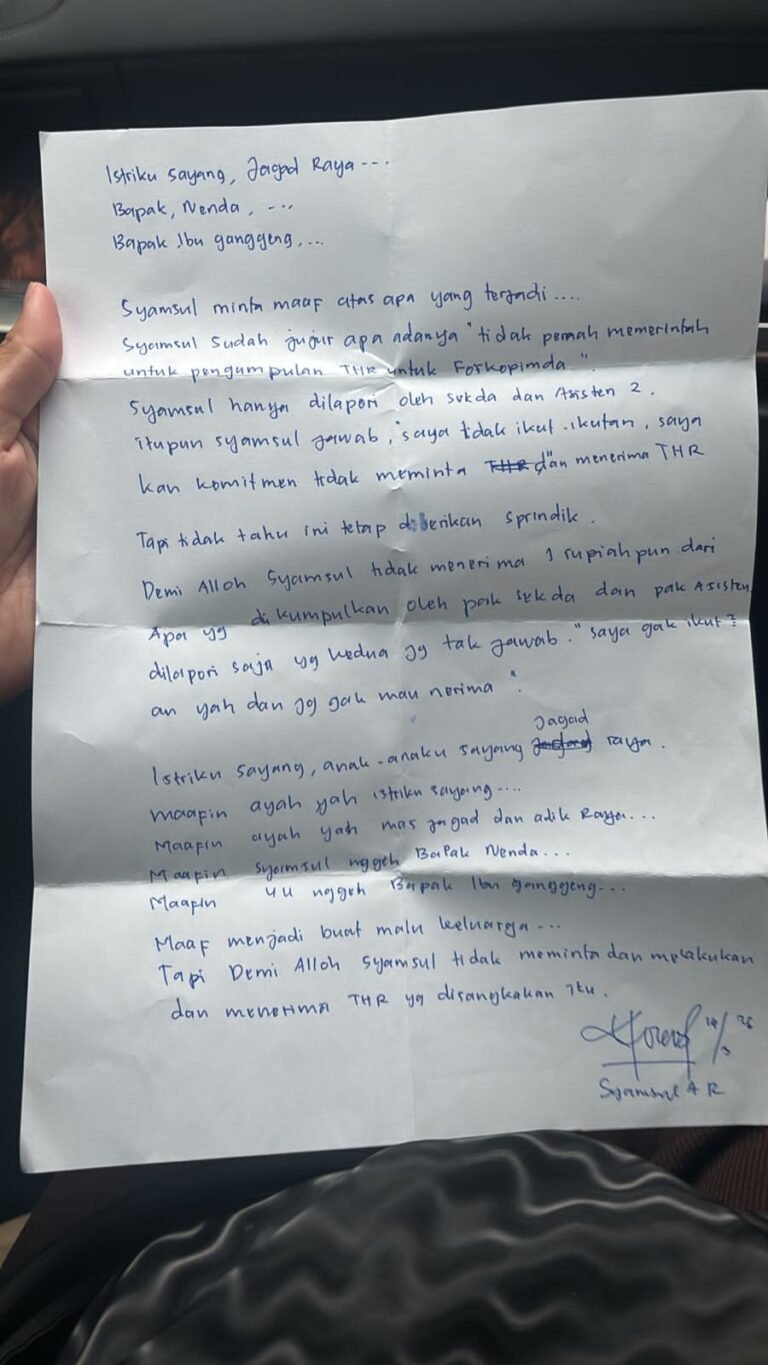 Istriku sayang, Jagad Raya ---
Bapak, Nenda, ---
Bapak Ibu ganggeng, ...
Syamsul minta maaf atas apa yang terjadi ....
Syamsul sudah jujur apa adanya "tidak pernah memerintah
untuk pengumpulan THR untuk Forkopimda".
Syamsul hanya dilapori oleh sekda dan Asisten 2.
itupun syamsul jawab, "saya tidak ikut-ikutan, saya
kan komitmen tidak meminta THR dan menerima THR"
Tapi tidak tahu ini tetap diberikan sprindik.
Demi Alloh Syamsul tidak menerima 1 rupiah pun dari
Apa yg dikumpulkan oleh pak sekda dan pak Asisten
dilapori saja yg kedua jg tak jawab. "saya gak ikut2
an yah dan jg gak mau nerima".
Istriku sayang, anak-anaku sayang Jagad raya.
maafin ayah yah istriku sayang....
Maafin ayah yah mas jagad dan adik Raya...
Maafin syamsul nggeh Bapak Nenda...
Maafin nggeh Bapak Ibu ganggeng---
Maaf menjadi buat malu keluarga ---
Tapi Demi Alloh Syamsul tidak meminta dan melakukan
dan menerima THR yg disangkakan itu.
Syamsul A R